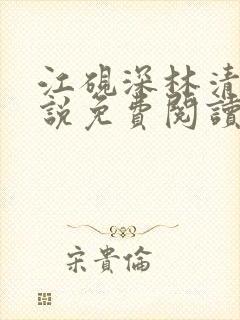 江硯深林清
說免費閱讀
宋貴倫